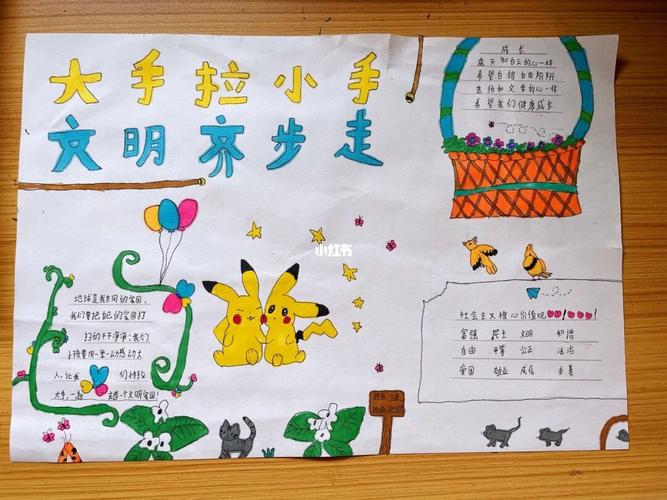 大手拉小手
文明齐步走
成长
蓝天和白云的心一样
希望白鸽自由翔翔
老师和父母的心一样
希望我们健康成长
小红书
地球是我共同的家园，
我们要把自己的家园打
扫的干干净净；我们
小孩要用一举一动感动大
人，让我们小手拉
大手，一起去建个文明家园！
社会主义核心价值观
富强 民主 文明 和谐
自由 平等 公正 法治
爱国 敬业 诚信 友善